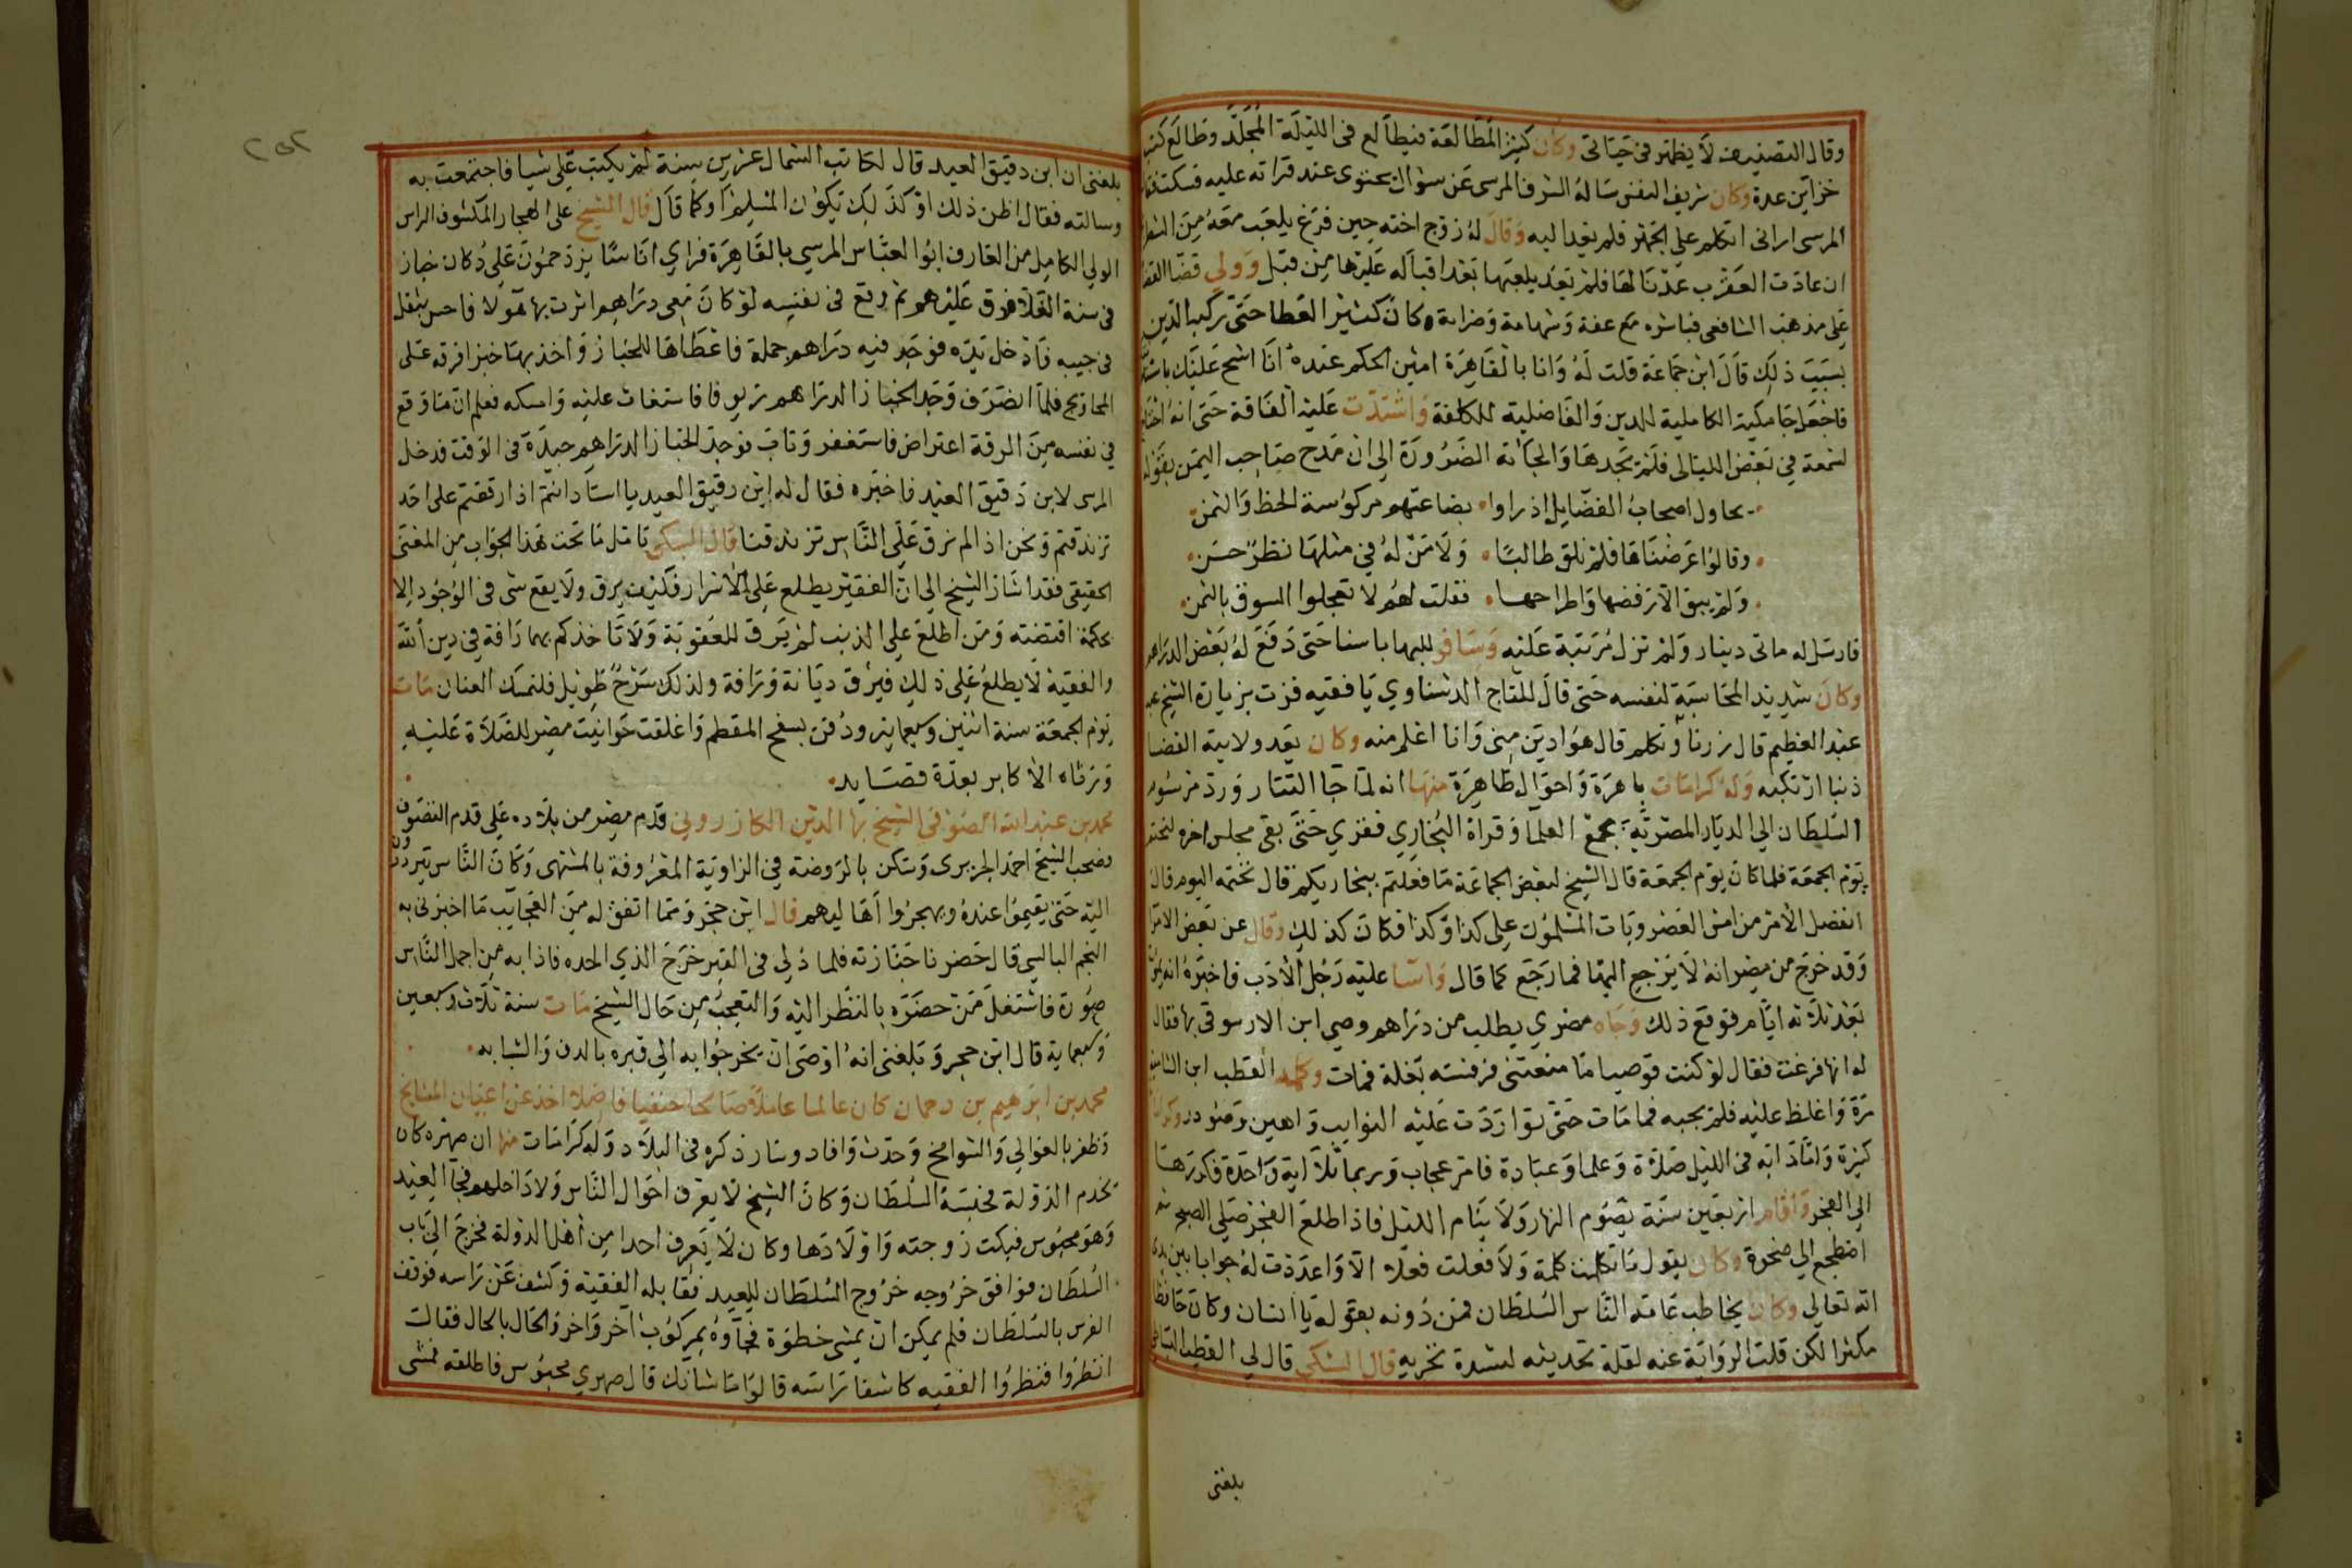 وقال التصنيف لا يظهر في حياتي وكان كثير المطالعة فيطالع في الليلة المجلد وطالع كتب
خزاين عدة وكان شريف النفس ساله الشرف المرسي عن سوال نحنوى عند قراته عليه فسكت فقال
المرسى اراني اتكلم على الجهر فلم يعد اليه وقال له زوج اخته حين فرغ يلعب معه من الشطر
ان عادت العقرب عدنا لها فلم يعد يلعبها بعد اقباله عليها من قبل وولي قضا القضا
على مذهب الشافعي فباشره مع عفة وشهامة وضرامة وكان كثير العطا حتى تركبه الدين
بسبب ذلك قال ابن جماعة قلت له وانا بالقاهرة امين الحكم عنده انا اشح عليك باشتغ
فاجعل جامكية الكاملية للدين والفاضلية للكلفة واشتدت عليه الفاقة حتى انه احتاج
لشمعة في بعض الليالي فلم يجدها والجاته الضرورة الى ان مدح صاحب اليمن بقوله
يحاول اصحاب الفضايل اذ راوا بضاعتهم مركوسة الحظ والثمن
وقالوا عرضناها فلم نلق طالبا ولا من له في مثلها نظر حسن
ولم يبق الا رفضها واطراحها فقلت لهم لا تعجلوا السوق باليمن
فارسل له ماتى دينار ولم تزل مرتبة عليه وسافر للبها باسنا حتى دفع له بعض الدراهم
وكان شديد المحاسبة لنفسه حتى قال للتاج الدشناوي يا فقيه فزت بزيارة الشيخ عبد
عبد العظيم قال زرنا وتكلم قال هو ادين مني وانا اعلم منه وكان يعد ولاية القضا
ذنبا ارتكبه وله كرامات باهرة واحوال ظاهرة منها انه لما جا التتار ورد مرسوم
السلطان الى الديار المصرية بجمع العلما وقراة البخاري فقري حتى بقي مجلس اخره لنختم
يوم الجمعة فلما كان يوم الجمعة قال الشيخ لبعض الجماعة ما فعلتم ببخاريكم قال نختمه اليوم قال
انفصل الامر من امس العصر وبات المسلمون على كذا وكذا فكان كذلك وقال عن بعض الامرا
وقد خرج من مصر انه لا يرجع اليها فما رجع كما قال واسا عليه رجل الادب فاخبره انه يموت
بعد ثلاثة ايام فوقع ذلك وجاه مضري يطلب من دراهم وصي ابن الارسوفي بها فقال
له انها فرغت فقال لو كنت قوصيا ما منعتني فرفسته بغلة فمات وكلمه القطب ابن الشامية
مرة واغلظ عليه فلم يجبه فما مات حتى تواردت عليه النوايب واهين وصودر وكراماته
كثيرة واما دابه في الليل صلاة وعلما وعبادة فامر عجاب وربما تلا اية واحدة فكررها
الى الفجر واقام اربعين سنة يصوم النهار ولا ينام الليل فاذا طلع الفجر صلى الصبح ثم
اضطجع الى ضحوة وكان يقول ما تكلمت كلمة ولا فعلت فعلا الا واعددت له جوابا بين يدي
الله تعالى وكان يخاطب عامة الناس السلطان فمن دونه بقوله يا انسان وكان حافظا
مكثرا لكن قلت الرواية عنه لقلة تحديثه لشدة تحريه قال السبكي قال لي القطب السنباطي
بلغني
بلغني ان ابن دقيق العيد قال لكاتب الشمال عشرين سنة لم يكتب علي شيا فاجتمعت به
وسالته فقال اظن ذلك او كذلك يكون المسلم او كما قال قال الشيخ على الهجار المكشوف الراس
الولي الكامل من العارف ابو العباس المرسي بالقاهرة فراي اناسا يزدحمون على دكان خباز
في سنة الغلا فرق عليهم ثم وقع في نفسه لو كان معي دراهم اثرت بها هولا فاحس بثقل
في جيبه فادخل يده فوجد فيه دراهم جملة فاعطاها للخباز واخذ بها خبزا فرقه على
المحاويج فلما انصرف وجد الخباز الدراهم زيوفا فاستغاث عليه وامسكه فعلم ان ما وقع
في نفسه من الرقة اعتراض فاستغفر وتاب فوجد الخباز الدراهم جيدة في الوقت فدخل
المرسى لابن دقيق العيد فاخبره فقال له ابن دقيق العيد يا استاد انتم اذا رققتم على احد
تزندقتم ونحن اذا لم نرق على الناس تزندقنا قال السبكي تامل ما تحت هذا الجواب من المعنى
الحقيقى فقد اشار الشيخ الى ان الفقير يطلع على الاسرار فكيف يرق ولا يقع شى في الوجود الا
بحكمة اقتضته ومن اطلع على الذنب لم يرق للعقوبة ولا تاخذكم بهما رافة في دين الله
والفقيه لا يطلع على ذلك فيرق ديانة ورافة ولذلك شرح طويل فلنمسك العنان مات
يوم الجمعة سنة اثنين وسبعماية ودفن بسفح المقطم واغلقت حوانيت مصر للصلاة عليه
ورثاه الاكابر بعدة قصايد
محمد بن عبد الله الصوفي الشيخ بها الدين الكازروني قدم مصر من بلاده على قدم التصوف
وصحب الشيخ احمد الجزيري وسكن بالروضة في الزاوية المعروفة بالمشتهى وكان الناس يترددون
اليه حتى يقيموا عنده ويهجروا اهاليهم قال ابن حجر ومما اتفق له من العجايب ما اخبرني به
النجم البالسي قال حضرنا جنازته فلما دلي في القبر خرج الذي الحده فاذا به من اجمل الناس
صورة فاشتغل من حضره بالنظر اليه والتعجب من حال الشيخ مات سنة ثلاث وسبعين
وسبعماية قال ابن حجر وبلغني انه اوصى ان يخرجوا به الى قبره بالدف والشبابه
محمد بن ابرهيم بن دحمان كان عالما عاملا صالحا حنفيا فاضلا اخذ عن اعيان المشايخ
وظفر بالعوالي والشوامخ وحدث وافاد وسار ذكره في البلاد وله كرامات منها ان صهره كان
يخدم الدولة فحبسه السلطان وكان الشيخ لا يعرف احوال الناس ولا داخلهم فجا العيد
وهو محبوس فبكت زوجته واولادها وكان لا يعرف احدا من اهل الدولة فخرج الى باب
السلطان فوافق خروجه خروج السلطان للعيد فقابله الفقيه وكشف عن راسه فوقف
الفرس بالسلطان فلم يمكن ان يمشي خطوة فجاوه بمركوب اخر واخر والحال بالحال فقالت
انظروا فنظروا الفقيه كاشفا راسه قالوا ما شانك قال صهري محبوس فاطلقه فمشى